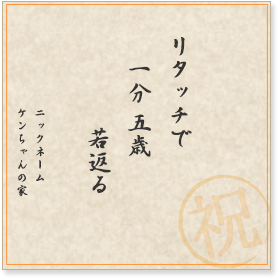 リタッチで
一分五歳
若返る
ニックネーム
ケンちゃんの家
祝